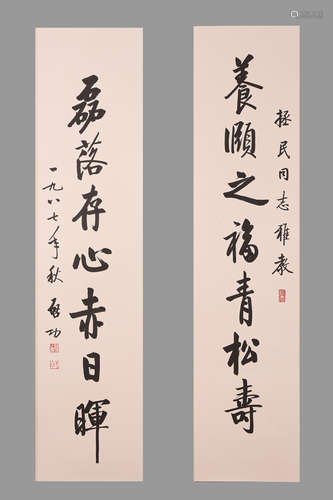 拯民同志雅教
養頤之福青松壽
磊落存心赤日暉
一九八七年秋 啟功